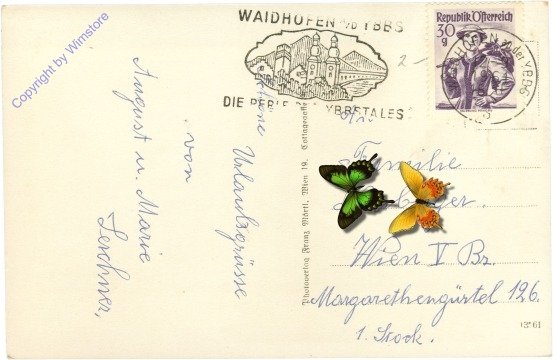 Copyright by Wimstore
WAIDHOFEN a/d YBBS
DIE PERLE YBBSTALES
Republik Österreich
30
g
Schöne Urlaubsgrüsse
von
August u. Marie
Lerchner,
Photoverlag Franz Mörtl, Wien 19,
Familie
Wien V Bz.
Margarethengürtel 126.
1. Stock.